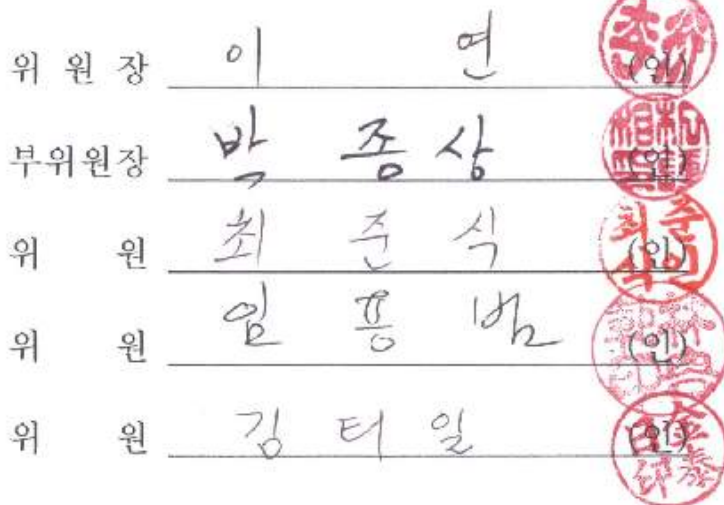 위 원 장 이 연 (인)
부위원장 박 종 상 (인)
위 원 최 준 식 (인)
위 원 임 용 범 (인)
위 원 김 태 일 (인)